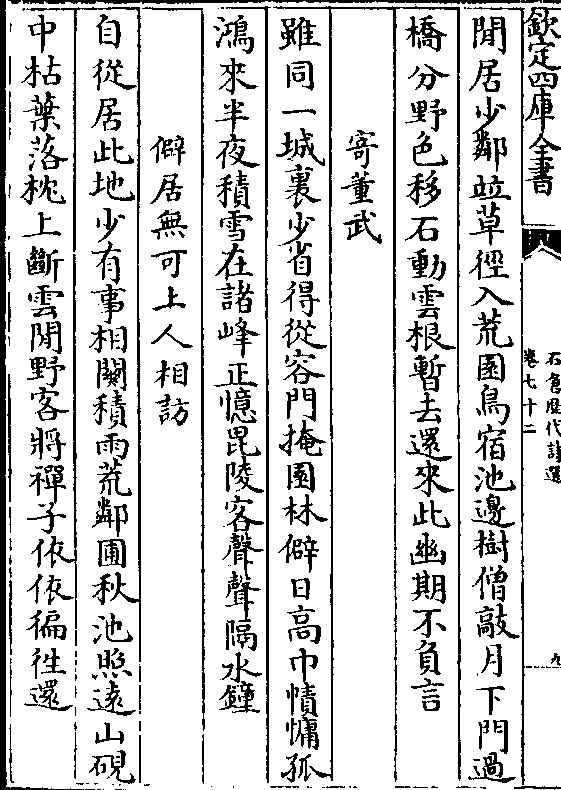 欽定四庫全書
石倉歷代詩選
卷七十二
九
閒居少鄰竝草徑入荒園鳥宿池邊樹僧敲月下門過
橋分野色移石動雲根暫去還來此幽期不負言
寄董武
雖同一城裏少省得從容門掩園林僻日高巾幘慵孤
鴻來半夜積雪在諸峰正憶毘陵客聲聲隔水鐘
僻居無可上人相訪
自從居此地少有事相關積雨荒鄰圃秋池照遠山硯
中枯葉落枕上斷雲閒野客將禪子依依徧往還